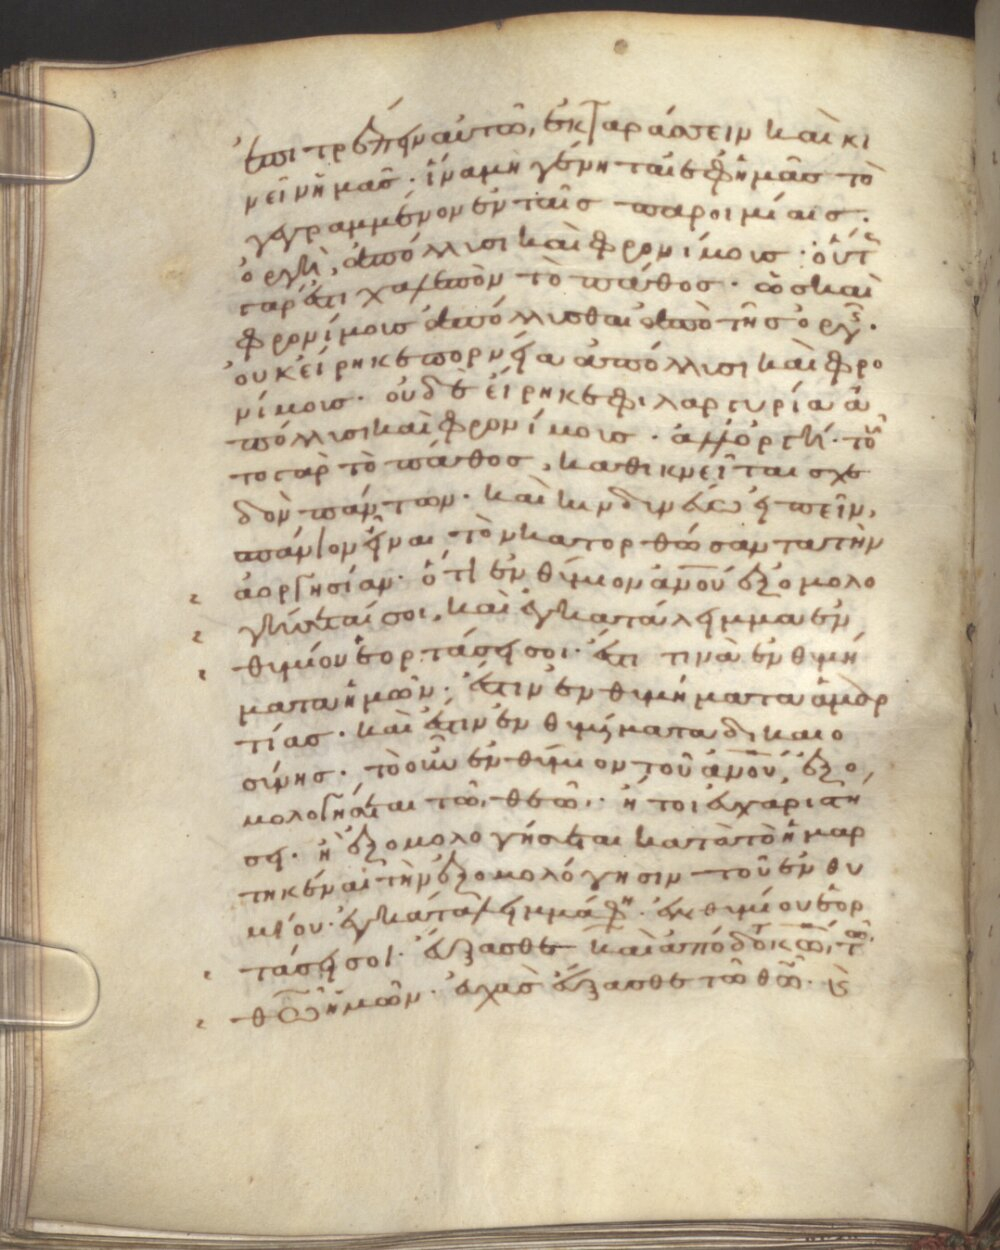 ἐπιτρέπειν αὐτῶ, ἐκταράσσειν καὶ κι
νεῖν ἡμᾶσ· ἵνα μὴ γένηται ἐφ ἡμᾶσ τὸ
γεγραμμένον ἐν ταῖσ παροιμίαισ·
ὀργὴ, ἀπόλλυσι καὶ φρονίμουσ· οὕτ
γάρ ἐστι χαλεπὸν τὸ πάθοσ· ὡσ καὶ
φρονίμουσ ἀπόλλυσθαι ἀπὸ τῆσ ὀργῆς·
οὐκ εἴρηκε πορνεία ἀπόλλυσι καὶ φρο
νίμουσ· οὐδὲ εἴρηκε φιλαργυρία ἀ
πόλλυσι καὶ φρονίμουσ· ἀλλ' ὀργή· τοῦ
το γὰρ τὸ πάθοσ, καθικνεῖται σχε
δὸν πάντων· καὶ κινδυνεύω εἰπεῖν,
σπάνιον εἶναι τὸν κατορθώσαντα τὴν
ἀοργησίαν· ὅτι ἐνθύμιον ἀνου ἐξομολο
γήσεταί σοι, καὶ ἐγκατάλειμμα ἐν
θυμίου ἑορτάσει σοι· ἔστι τινὰ ἐνθυμή
ματα ἡμῶν· ἔστιν ἐνθυμήματα ἁμαρ
τίασ· καὶ ἔστιν ἐνθυμήματα δικαιο
σύνησ· τὸ οὖν ἐνθύμιον τοῦ ἀνου, ἐξο
μολογήσεται τῶ θεῶ· ἤτοι εὐχαριστή
σει· ἢ ἐξομολογήσεται κατὰ τὸ ἡμαρ
τηκέναι τὴν ἐξομολόγησιν τοῦ ἐνθυ
μίου· ἐγκατάλειμμά φη· ἐνθυμίου ἑορ
τάσει σοι· εὔξασθε καὶ ἀπόδοτε κω τῶ
θω ἡμῶν· εὐχὰσ εὔξασθε τῶ θω· καὶ